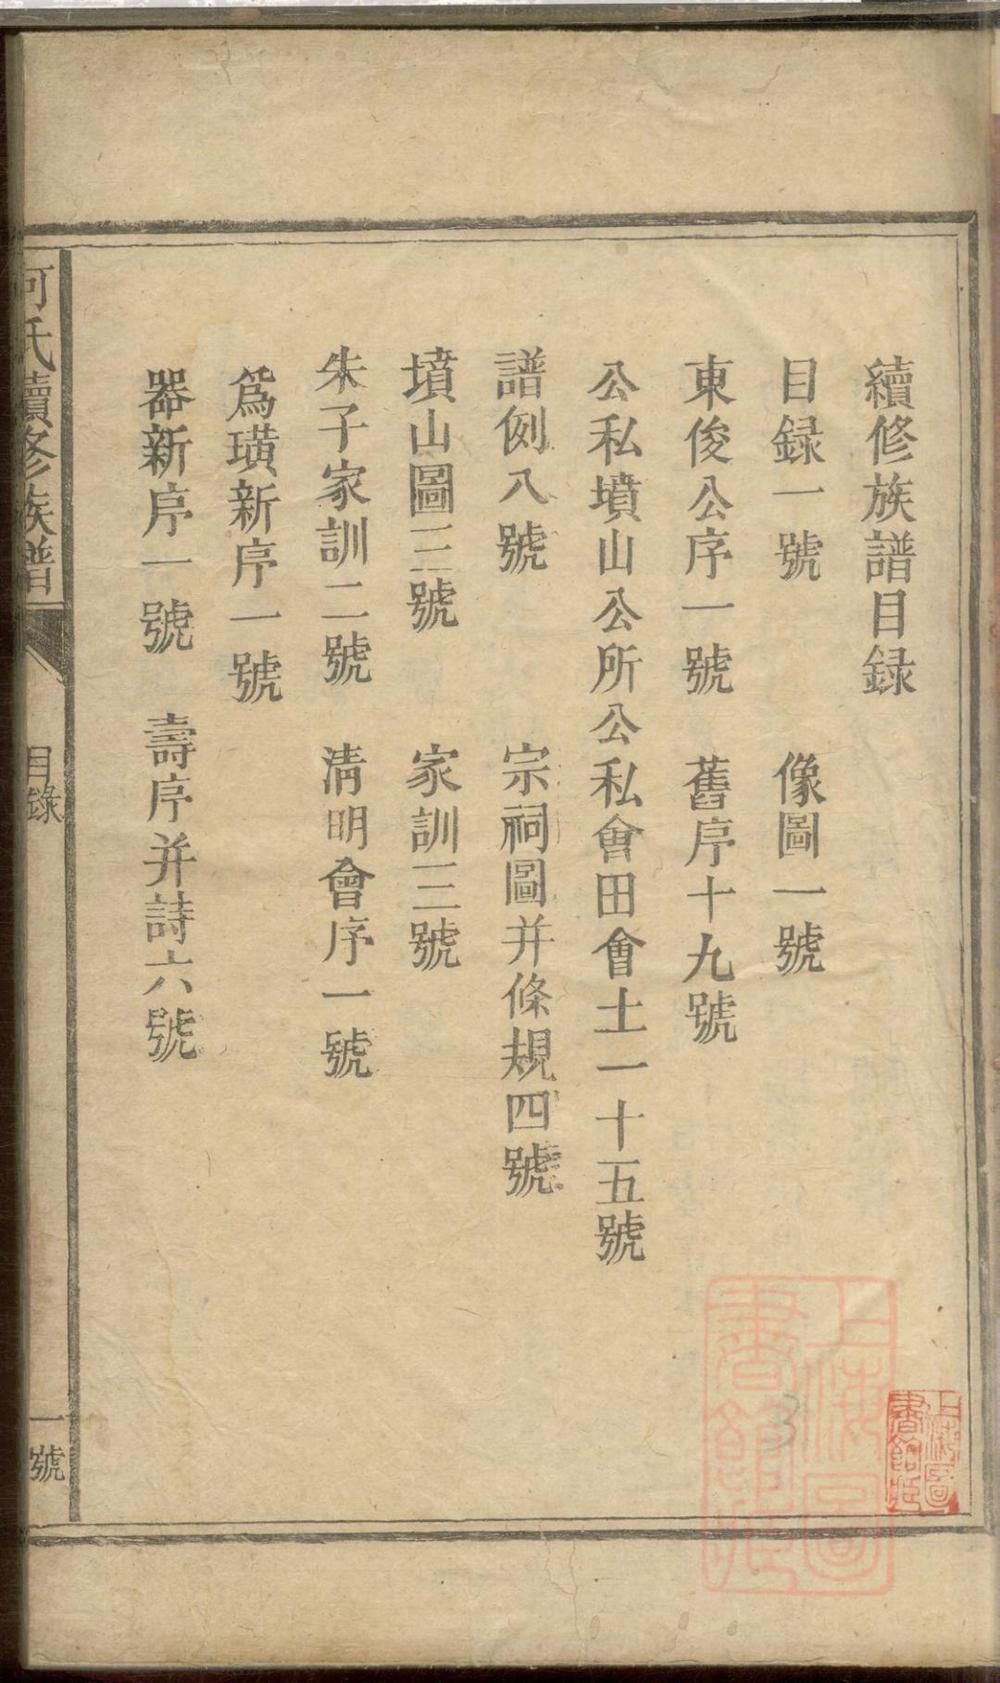 續修族譜目録
目録一號　像圖一號
東俊公序一號　舊序十九號
公私墳山公所公私會田會土一十五號
譜例八號　宗祠圖并條規四號
墳山圖三號　家訓三號
朱子家訓二號　淸明會序一號
爲璜新序一號
器新序一號　壽序并詩六號
何氏續修族譜　目錄　一號
上海圖書館藏
上海圖書館藏
3